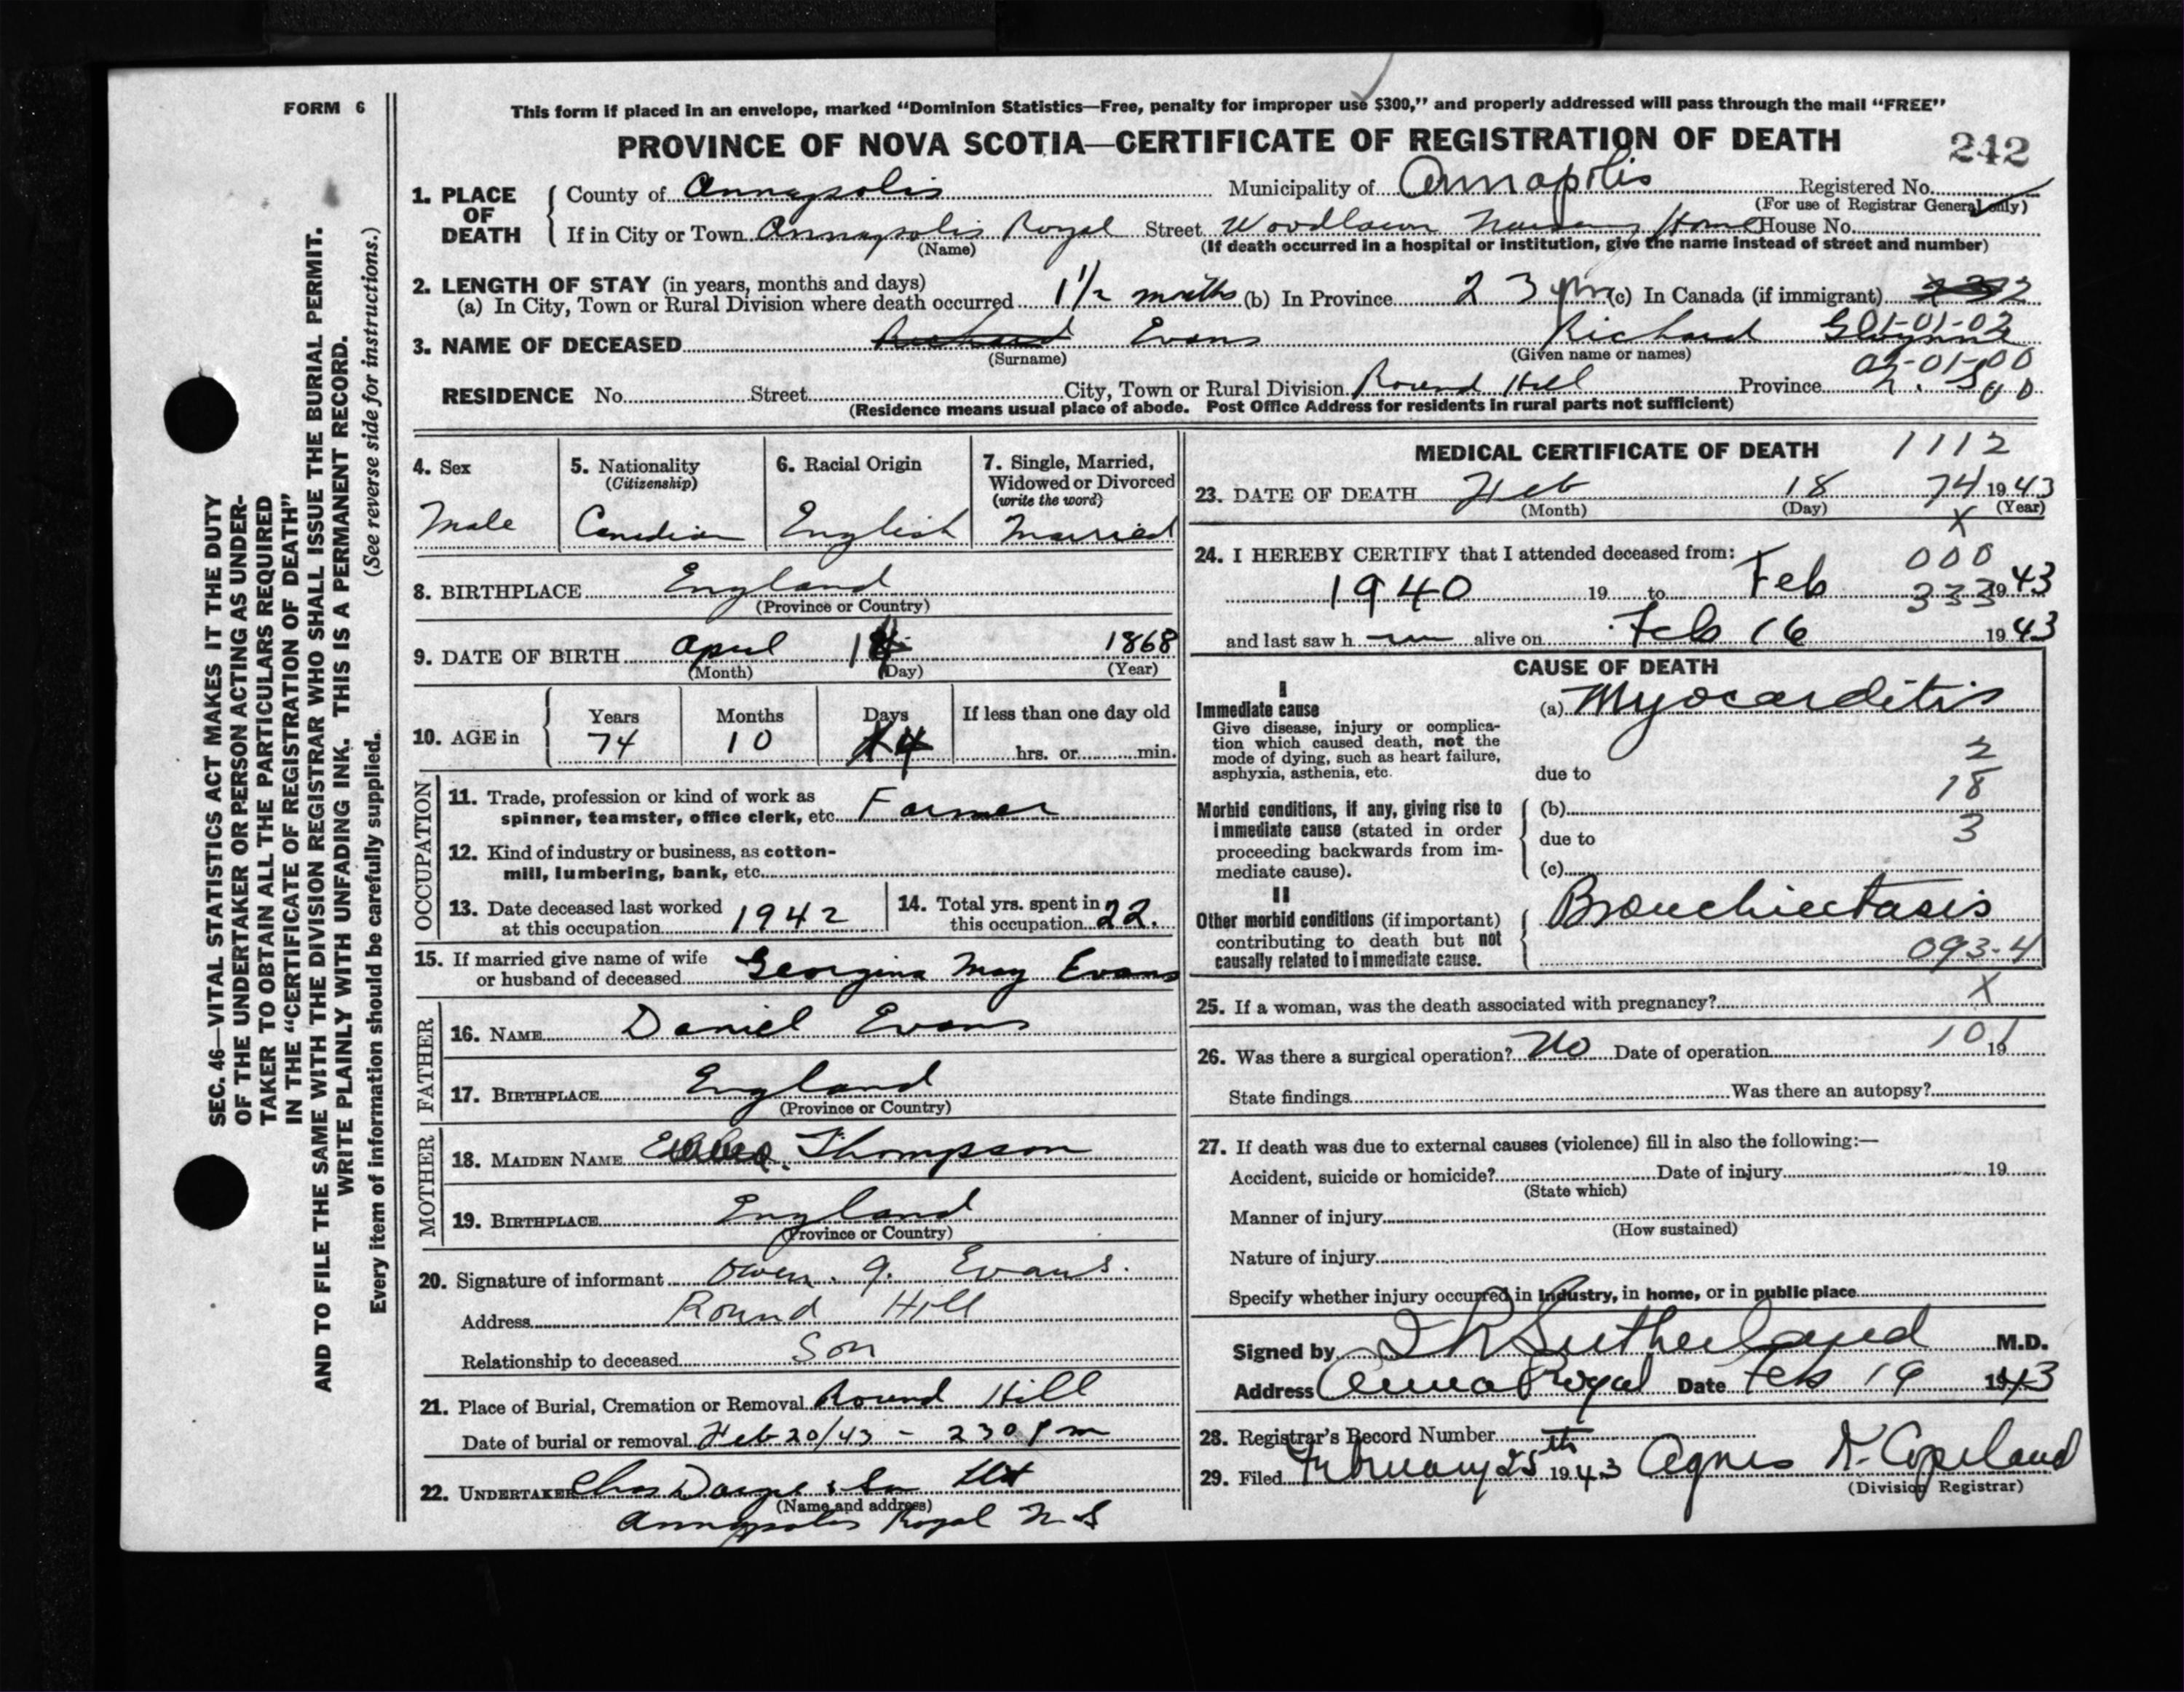 FORM 6
This form if placed in an envelope, marked “Dominion Statistics—Free, penalty for improper use $300,” and properly addressed will pass through the mail “FREE”
PROVINCE OF NOVA SCOTIA—CERTIFICATE OF REGISTRATION OF DEATH
242
1. PLACE OF DEATH
County of Annapolis Municipality of Annapolis Registered No.
(For use of Registrar General only)
If in City or Town Annapolis Royal Street Woodlawn Nursing Home House No.
(Name) (If death occurred in a hospital or institution, give the name instead of street and number)
2. LENGTH OF STAY (in years, months and days)
(a) In City, Town or Rural Division where death occurred 1 1/2 months (b) In Province 23 yrs (c) In Canada (if immigrant)
01-01-02
3. NAME OF DECEASED Evans Richard Gwynne
(Surname) (Given name or names)
02-01-00
RESIDENCE No. Street City, Town or Rural Division Round Hill Province N.S.
(Residence means usual place of abode. Post Office Address for residents in rural parts not sufficient)
4. Sex
Male
5. Nationality
(Citizenship)
Canadian
6. Racial Origin
English
7. Single, Married, Widowed or Divorced
(write the word)
Married
8. BIRTHPLACE England
(Province or Country)
9. DATE OF BIRTH April 1868
(Month) (Day) (Year)
10. AGE in
Years Months Days If less than one day old
74 10 hrs. or min.
OCCUPATION
11. Trade, profession or kind of work as
spinner, teamster, office clerk, etc. Farmer
12. Kind of industry or business, as cotton-
mill, lumbering, bank, etc.
13. Date deceased last worked
at this occupation 1942
14. Total yrs. spent in
this occupation 22.
15. If married give name of wife
or husband of deceased Georgina May Evans
FATHER
16. NAME Daniel Evans
17. BIRTHPLACE England
(Province or Country)
MOTHER
18. MAIDEN NAME Thompson
19. BIRTHPLACE England
(Province or Country)
20. Signature of informant Owen. G. Evans.
Address Round Hill
Relationship to deceased Son
21. Place of Burial, Cremation or Removal Round Hill
Date of burial or removal Feb 20/43 - 230 P m
22. UNDERTAKER Chas Dargie & Son Ltd
(Name and address)
Annapolis Royal N S
MEDICAL CERTIFICATE OF DEATH
1112
23. DATE OF DEATH Feb 18 74 1943
(Month) (Day) (Year)
X
24. I HEREBY CERTIFY that I attended deceased from:
000
1940 19 to Feb 333 1943
and last saw h alive on Feb 16 1943
CAUSE OF DEATH
I
Immediate cause
Give disease, injury or complica-
tion which caused death, not the
mode of dying, such as heart failure,
asphyxia, asthenia, etc.
(a) Myocarditis
2
due to
18
Morbid conditions, if any, giving rise to
immediate cause (stated in order
proceeding backwards from im-
mediate cause).
(b)
due to
3
(c)
II
Other morbid conditions (if important)
contributing to death but not
causally related to immediate cause.
Bronchiectasis
093-4
25. If a woman, was the death associated with pregnancy? X
101
26. Was there a surgical operation? No Date of operation 19
State findings Was there an autopsy?
27. If death was due to external causes (violence) fill in also the following:—
Accident, suicide or homicide? Date of injury 19
(State which)
Manner of injury
(How sustained)
Nature of injury
Specify whether injury occurred in industry, in home, or in public place
Signed by Sutherland M.D.
Address Anna Royal Date Feb 19 1943
28. Registrar's Record Number
29. Filed February 25th 1943 Agnes K. Copeland
(Division Registrar)
SEC. 46—VITAL STATISTICS ACT MAKES IT THE DUTY
OF THE UNDERTAKER OR PERSON ACTING AS UNDER-
TAKER TO OBTAIN ALL THE PARTICULARS REQUIRED
IN THE “CERTIFICATE OF REGISTRATION OF DEATH”
AND TO FILE THE SAME WITH THE DIVISION REGISTRAR WHO SHALL ISSUE THE BURIAL PERMIT.
WRITE PLAINLY WITH UNFADING INK. THIS IS A PERMANENT RECORD.
Every item of information should be carefully supplied. (See reverse side for instructions.)